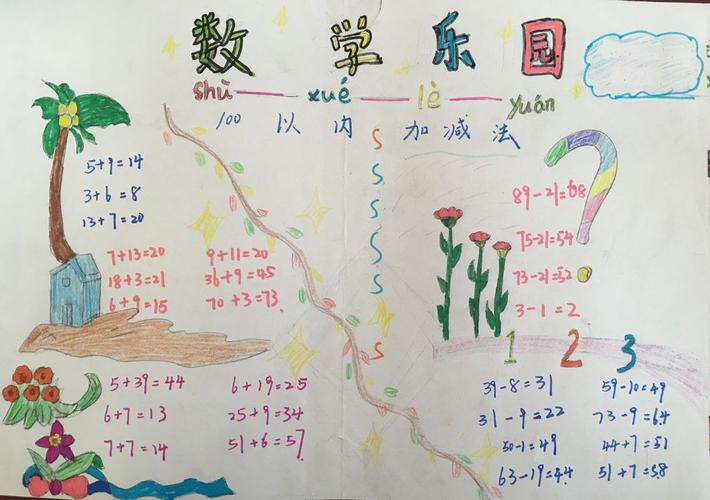 数 学 乐 园
shù xué lè yuán
100 以内 加减法
5+9=14
3+6=8
13+7=20
7+13=20
18+3=21
6+9=15
9+11=20
36+9=45
70+3=73
5+39=44
6+7=13
7+7=14
6+19=25
25+9=34
51+6=57
S
S
S
S
S
S
89-21=68
75-21=54
73-21=52
3-1=2
1 2 3
39-8=31
31-9=22
50-1=49
63-19=44
59-10=49
73-9=64
44+7=51
51+7=58